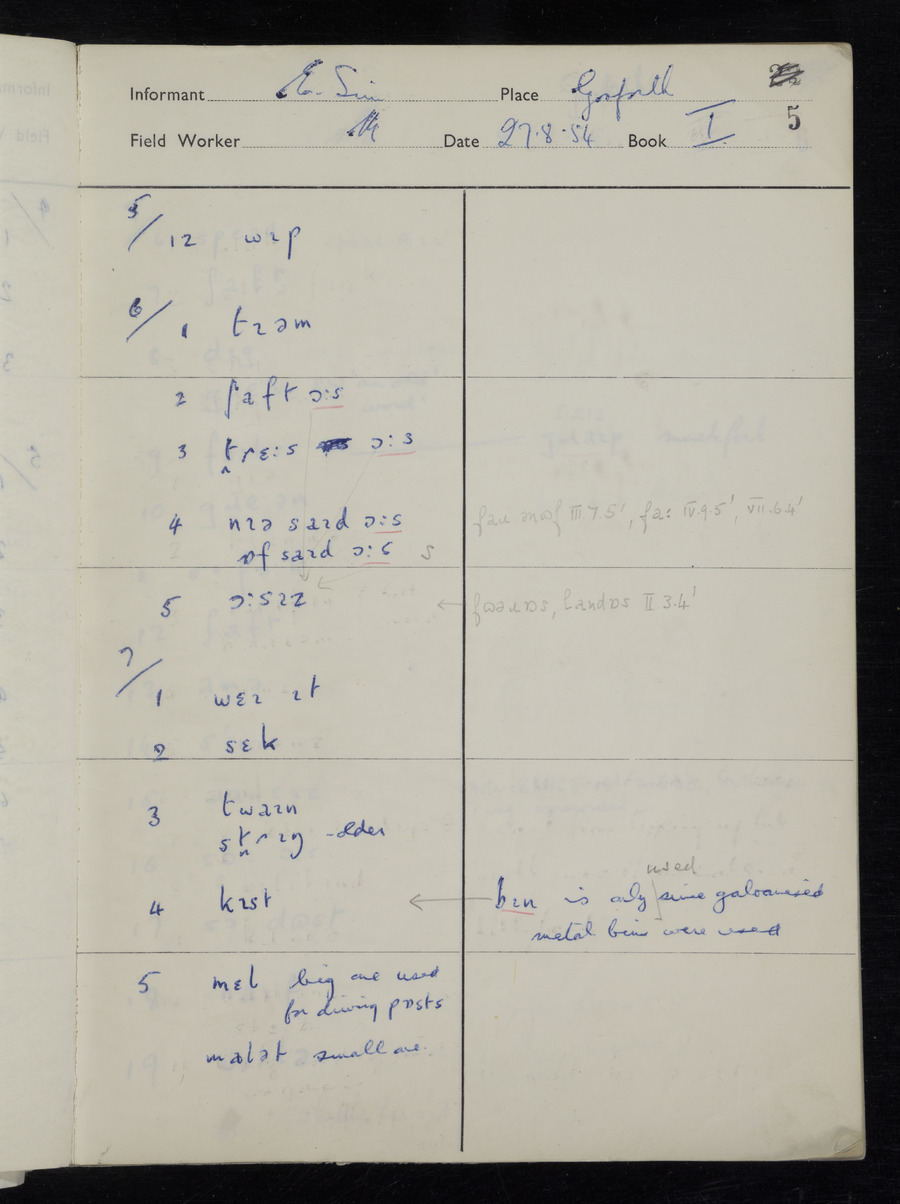 Informant E. Sim Place Gosforth
5
Field Worker Date 27.8.54 Book I
5/12 wɪp
6/1 tɪəm
2 ʃaft ɔ:s
3 trɛ:s ɔ:s
4 nɪə saɪd ɔ:s
ɒf saɪd ɔ:s s
5 ɔ:sɪz
7/1 wɛɪ ɪt
2 sɛk
3 twaɪn
strɪŋ -older
4 kɪst
5 mɛl big one used
for driving pɒsts
malət small one.
III.7.5', fa: IV.9.5', VII.6.4'
← landɒs II 3.4'
used
← bɪn is only since galvanised
metal bins were used